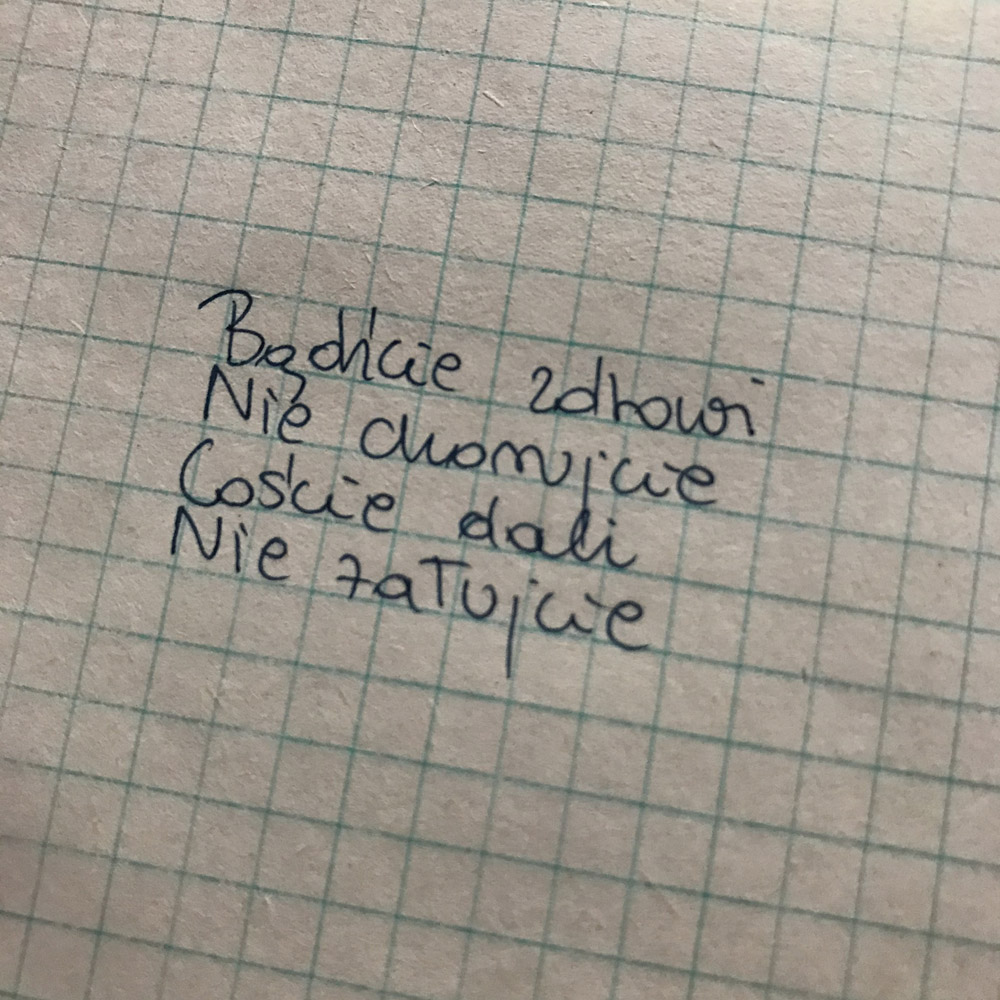 Bądźcie zdrowi
Nie chorujcie
Coście dali
Nie żałujcie